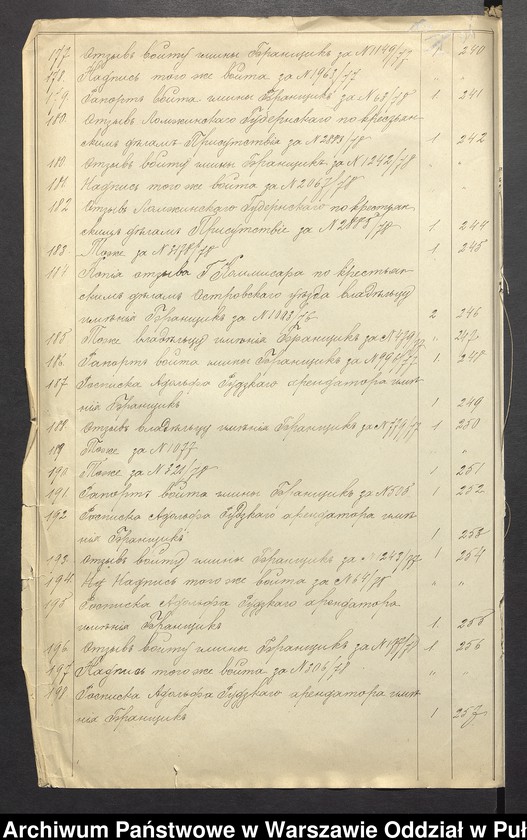 177 Отзывъ войту гмины Боранщикъ за N1149/77 1 240
178. Надпись того же войта за N1963/77 " "
179. Рапортъ войта гмины Боранщикъ за N68/78 1 241
180 Отзывъ Ломжинскаго Губернскаго по крестьян-
скимъ дѣламъ Присутствіе за N2883/78 1 242
180. Отзывъ войту гмины Боранщикъ за N1242/78 "
181. Надпись того же войта за N2067/78 "
182 Отзывъ Ломжинскаго Губернскаго по крестьян-
скимъ дѣламъ Присутствіе за N2885/78 1 244
183 Тоже за N3178/78 1 245
184 Копія отзыва Г Коммисара по крестьян-
скимъ дѣламъ Островскаго уѣзда владѣльцу
имѣнія Боранщикъ за N1083/76 2 246
185 Тоже владѣльцу имѣнія Боранщикъ за N479/77 " 247
186. Рапортъ войта гмины Боранщикъ за N996/77 1. 248
187 Росписка Адольфа Рудзкаго арендатора имѣ-
нія Боранщикъ 1 249
188. Отзывъ владѣльцу имѣнія Боранщикъ за N779/77 1 250
189 Тоже за N1077 "
190 Тоже за N321/78 1 251
191. Рапортъ войта гмины Боранщикъ за N505 1 252
192 Росписка Адольфа Рудзкаго арендатора имѣ-
нія Боранщикъ 1 253
193. Отзывъ войту гмины Боранщикъ за N243/77 1 254
194. Надпись того же войта за N64/78 " "
195 Росписка Адольфа Рудзкаго арендатора
имѣнія Боранщикъ 1 255
196. Отзывъ войту гмины Боранщикъ за N177/78 1 256
197 Надпись того же войта за N306/78 " "
198 Росписка Адольфа Рудзкаго арендатора имѣ-
нія Боранщикъ 1 257
Archiwum Państwowe w Warszawie Oddział w Puł